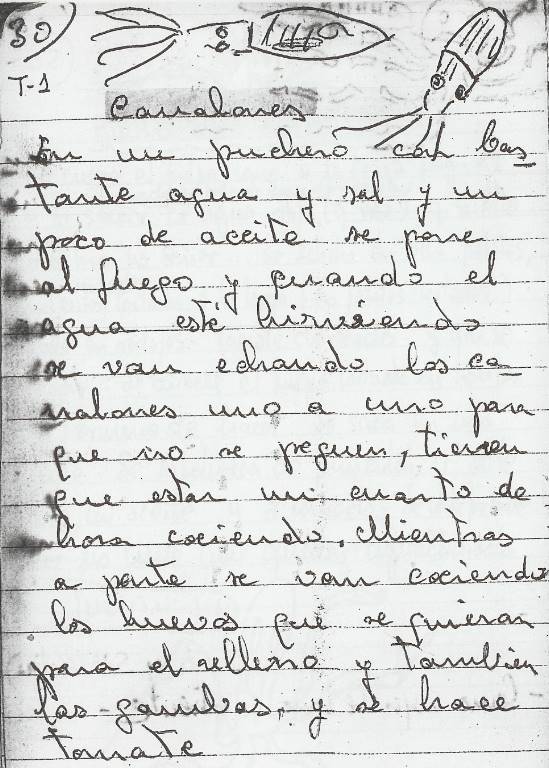 30
T-1
Canalones
En un puchero con bas
tante agua y sal y un
poco de aceite se pone
al fuego y quando el
agua esté hirviendo
se van echando los ca
nalones uno a uno para
que no se peguen, tienen
que estar un cuarto de
hora cociendo. Mientras
a parte se van cociendo
los huevos que se quieran
para el relleno y tambien
las gambas, y se hace
tomate